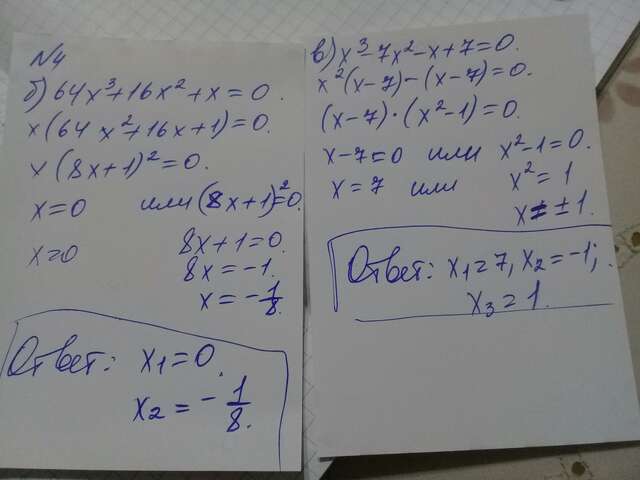 N4
б) 64x³+16x²+x=0.
x(64x²+16x+1)=0.
x(8x+1)²=0.
x=0 или (8x+1)²=0.
x=0 8x+1=0.
8x=-1.
x=-1/8.
Ответ: x₁=0.
x₂=-1/8.
в) x³-7x²-x+7=0.
x²(x-7)-(x-7)=0.
(x-7)·(x²-1)=0.
x-7=0 или x²-1=0.
x=7 или x²=1
x=±1.
Ответ: x₁=7, x₂=-1;
x₃=1.